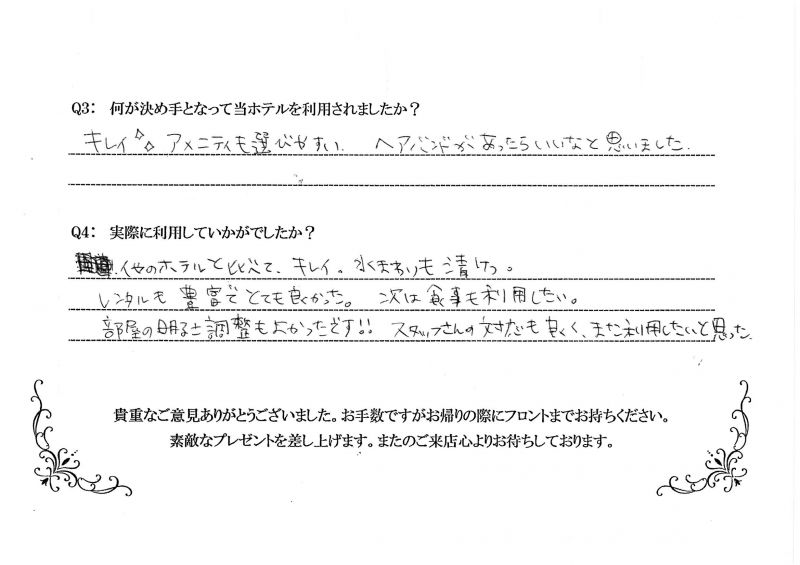 Q3： 何が決め手となって当ホテルを利用されましたか？
キレイ✧ アメニティも選びやすい. ヘアバンドがあったらいいなと思いました.
Q4： 実際に利用していかがでしたか？
他のホテルと比べて、キレイ。水まわりも清けつ。
レンタルも豊富でとても良かった。次は食事も利用したい。
部屋の明るさ調整もよかったです!! スタッフさんの対応も良く、また利用したいと思った.
貴重なご意見ありがとうございました。お手数ですがお帰りの際にフロントまでお持ちください。
素敵なプレゼントを差し上げます。またのご来店心よりお待ちしております。